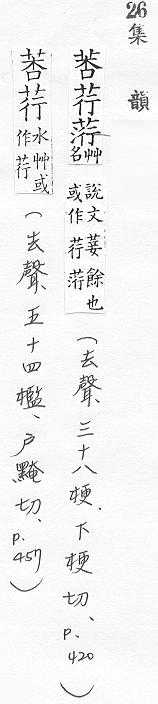 26
集韻
莕荇
艸名
說文菨餘也
或作荇
(去聲、三十八梗、下梗切、p.420)
莕荇
水艸或
作荇
(去聲、五十四檻、戶黤切、p.457)